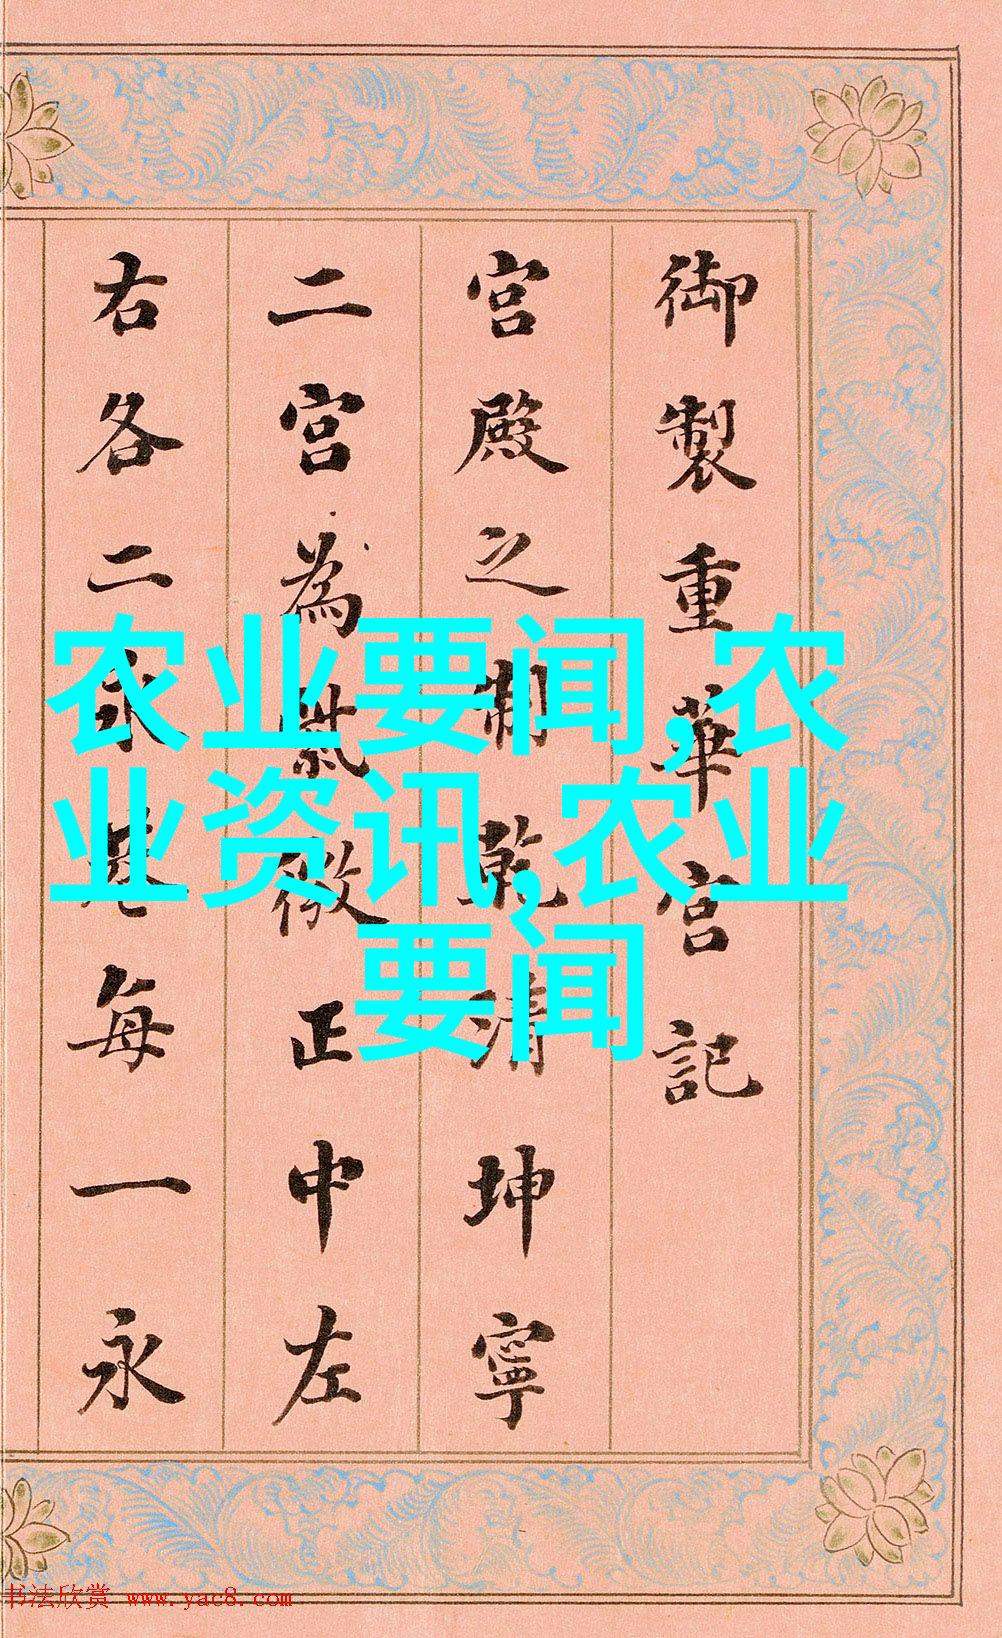 御製重華宮記
宮殿之制乾清坤寧
二宮為紫微正中左
右各二永巷每一永
农业要闻,农
业资讯,农业
要闻
书法欣赏 www.yac8.com